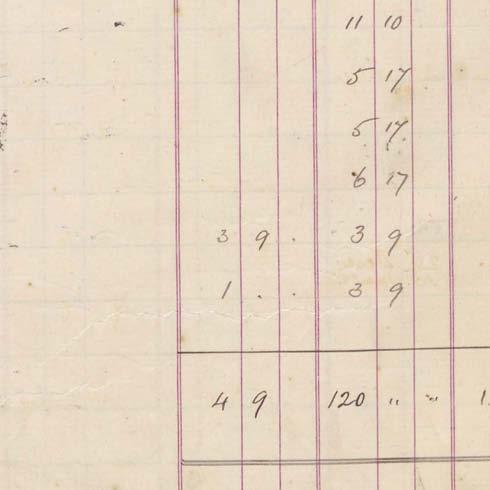 11 10
5 17
5 17
6 17
3 9 . 3 9
1 . . 3 9
4 9 120 " "